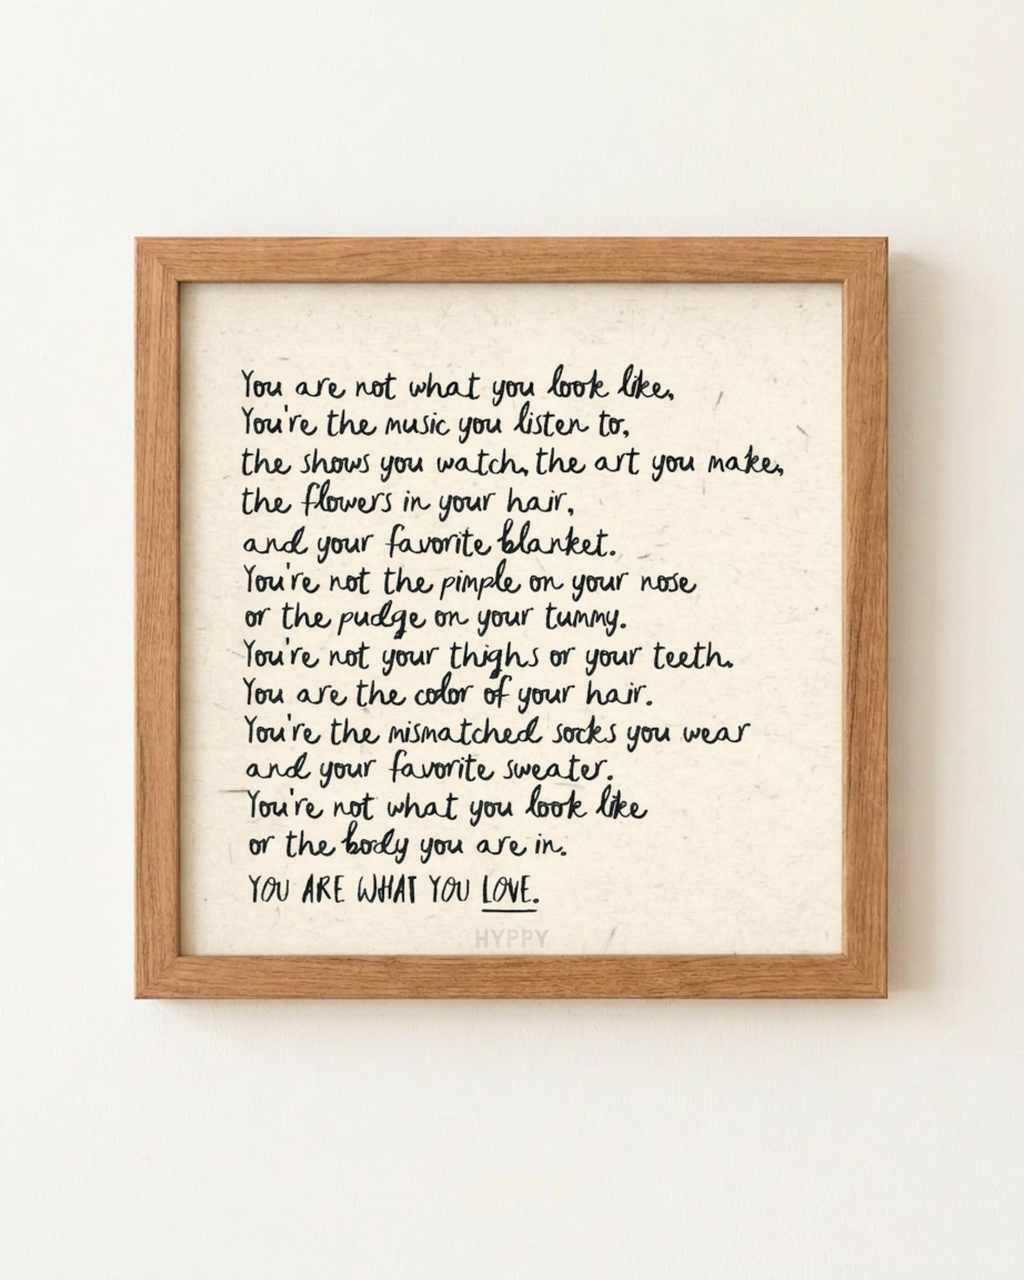 You are not what you look like,
You're the music you listen to,
the shows you watch, the art you make,
the flowers in your hair,
and your favorite blanket.
You're not the pimple on your nose
or the pudge on your tummy.
You're not your thighs or your teeth.
You are the color of your hair.
You're the mismatched socks you wear
and your favorite sweater.
You're not what you look like
or the body you are in.
YOU ARE WHAT YOU LOVE.
HYPPY